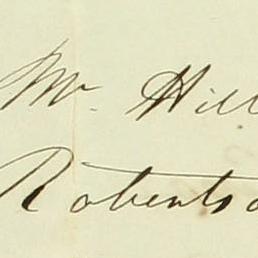 Mr. Hill
Robertso